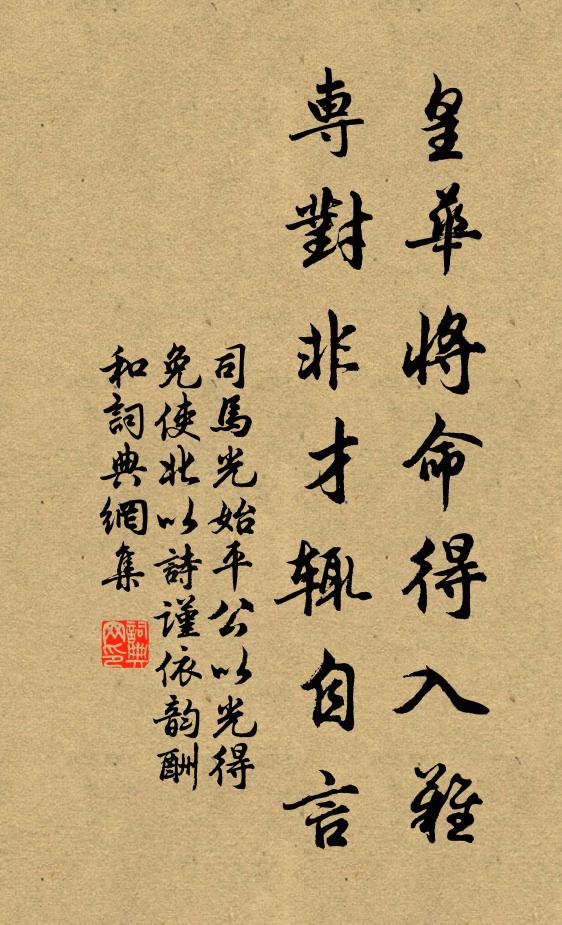 皇華將命得入難
專對非才輒自言
司馬光始平公以光得
免使北以詩謹依韵酬
和詞典網集
詞典
网印